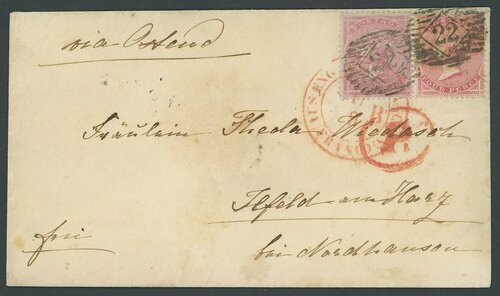 via Ostend
POSTAGE
22
FOUR PENCE
AUS ENG
FRANCO
Fräulein Theda Wiedasch
Ilfeld am Harz
frei
bei Nordhausen